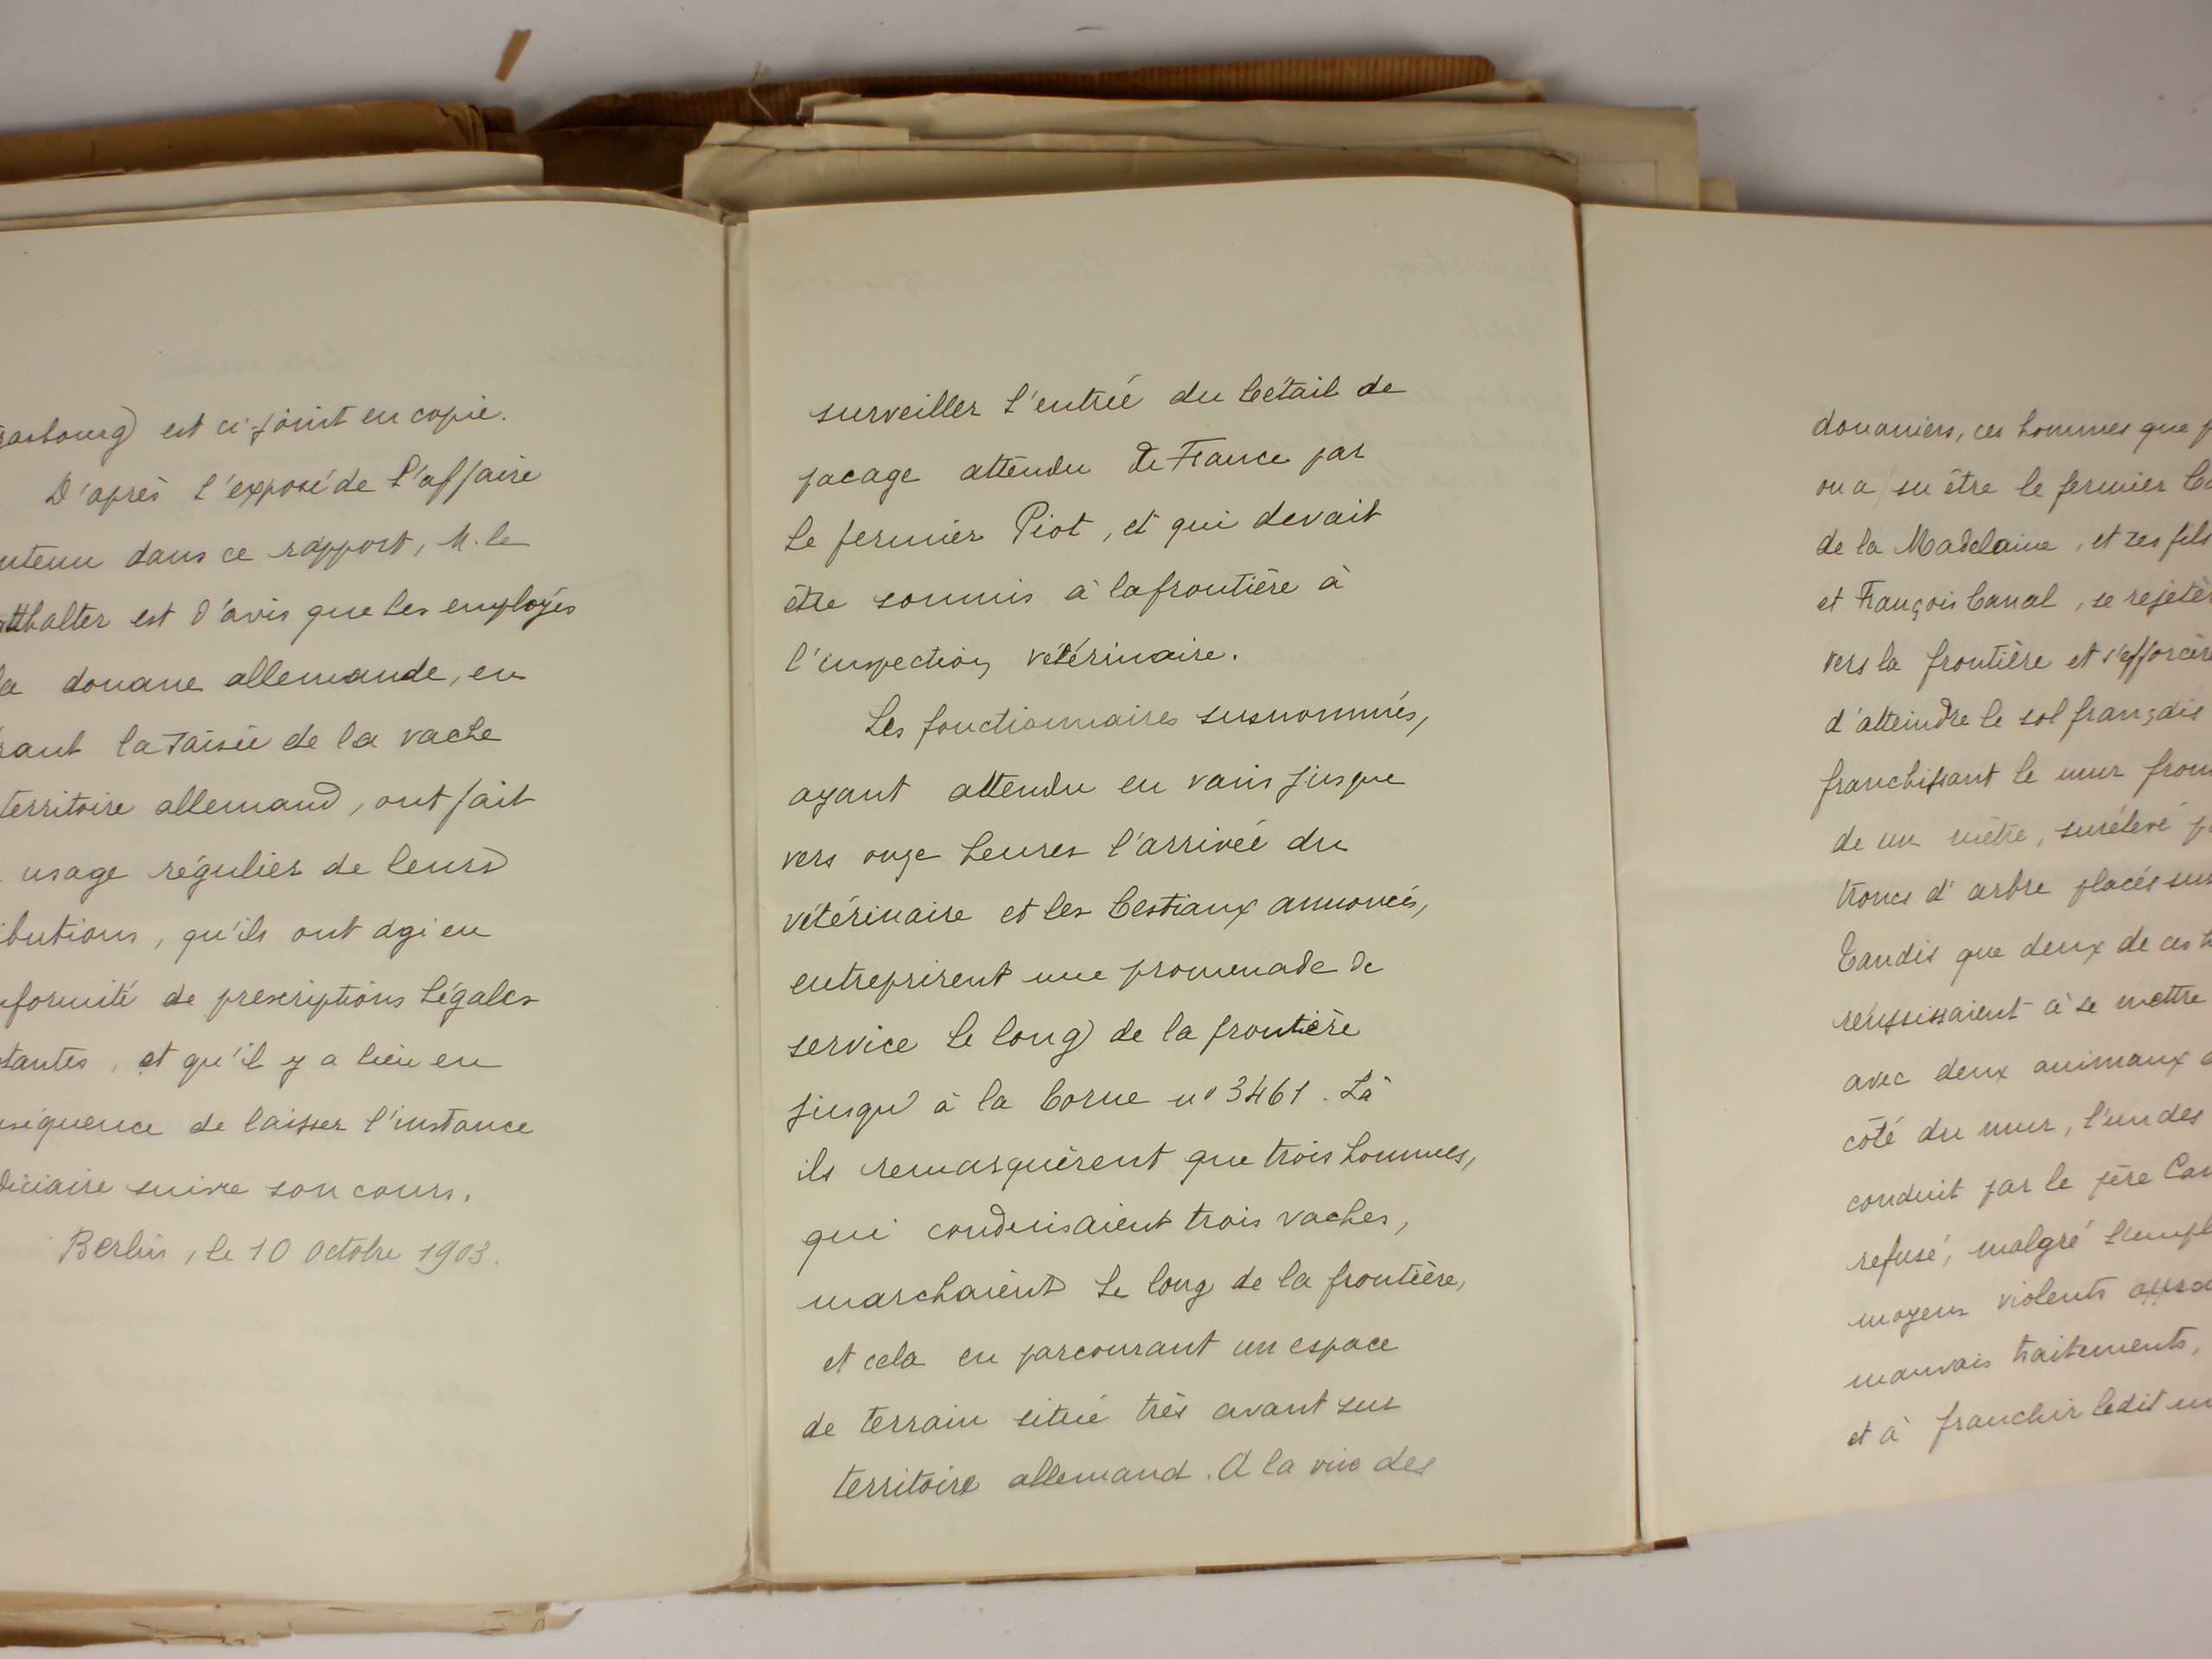 est ci-joint en copie.
D'après l'exposé de l'affaire
dans ce rapport, M. le
est d'avis que les employés
douane allemande, en
la saisie de la vache
territoire allemand, ont fait
usage régulier de leurs
qu'ils ont agi en
de prescriptions légales
et qu'il y a lieu en
de laisser l'instance
suivre son cours.
Berlin, le 10 Octobre 1903.
surveiller l'entrée du bétail de
pacage attendu de France par
le fermier Piot, et qui devait
être soumis à la frontière à
l'inspection vétérinaire.
Les fonctionnaires susnommés,
ayant attendu en vain jusque
vers onze heures l'arrivée du
vétérinaire et les bestiaux annoncés,
entreprirent une promenade de
service le long de la frontière
jusqu'à la borne no 3461. Là
ils remarquèrent que trois hommes,
qui conduisaient trois vaches,
marchaient le long de la frontière,
et cela en parcourant un espace
de terrain situé très avant sur
territoire allemand. A la vue des
douaniers, ces hommes que
on a su être le fermier
de la Madelaine, et ses fils
et François Canal, se
vers la frontière et
d'atteindre le sol français
franchissant le mur
de un mètre, surélevé
troncs d'arbre placés
Tandis que deux de ces
réussissaient à se mettre
avec deux animaux
côté du mur, l'un des
conduit par le père
refusé, malgré
moyens violents
mauvais traitements,
et à franchir ledit